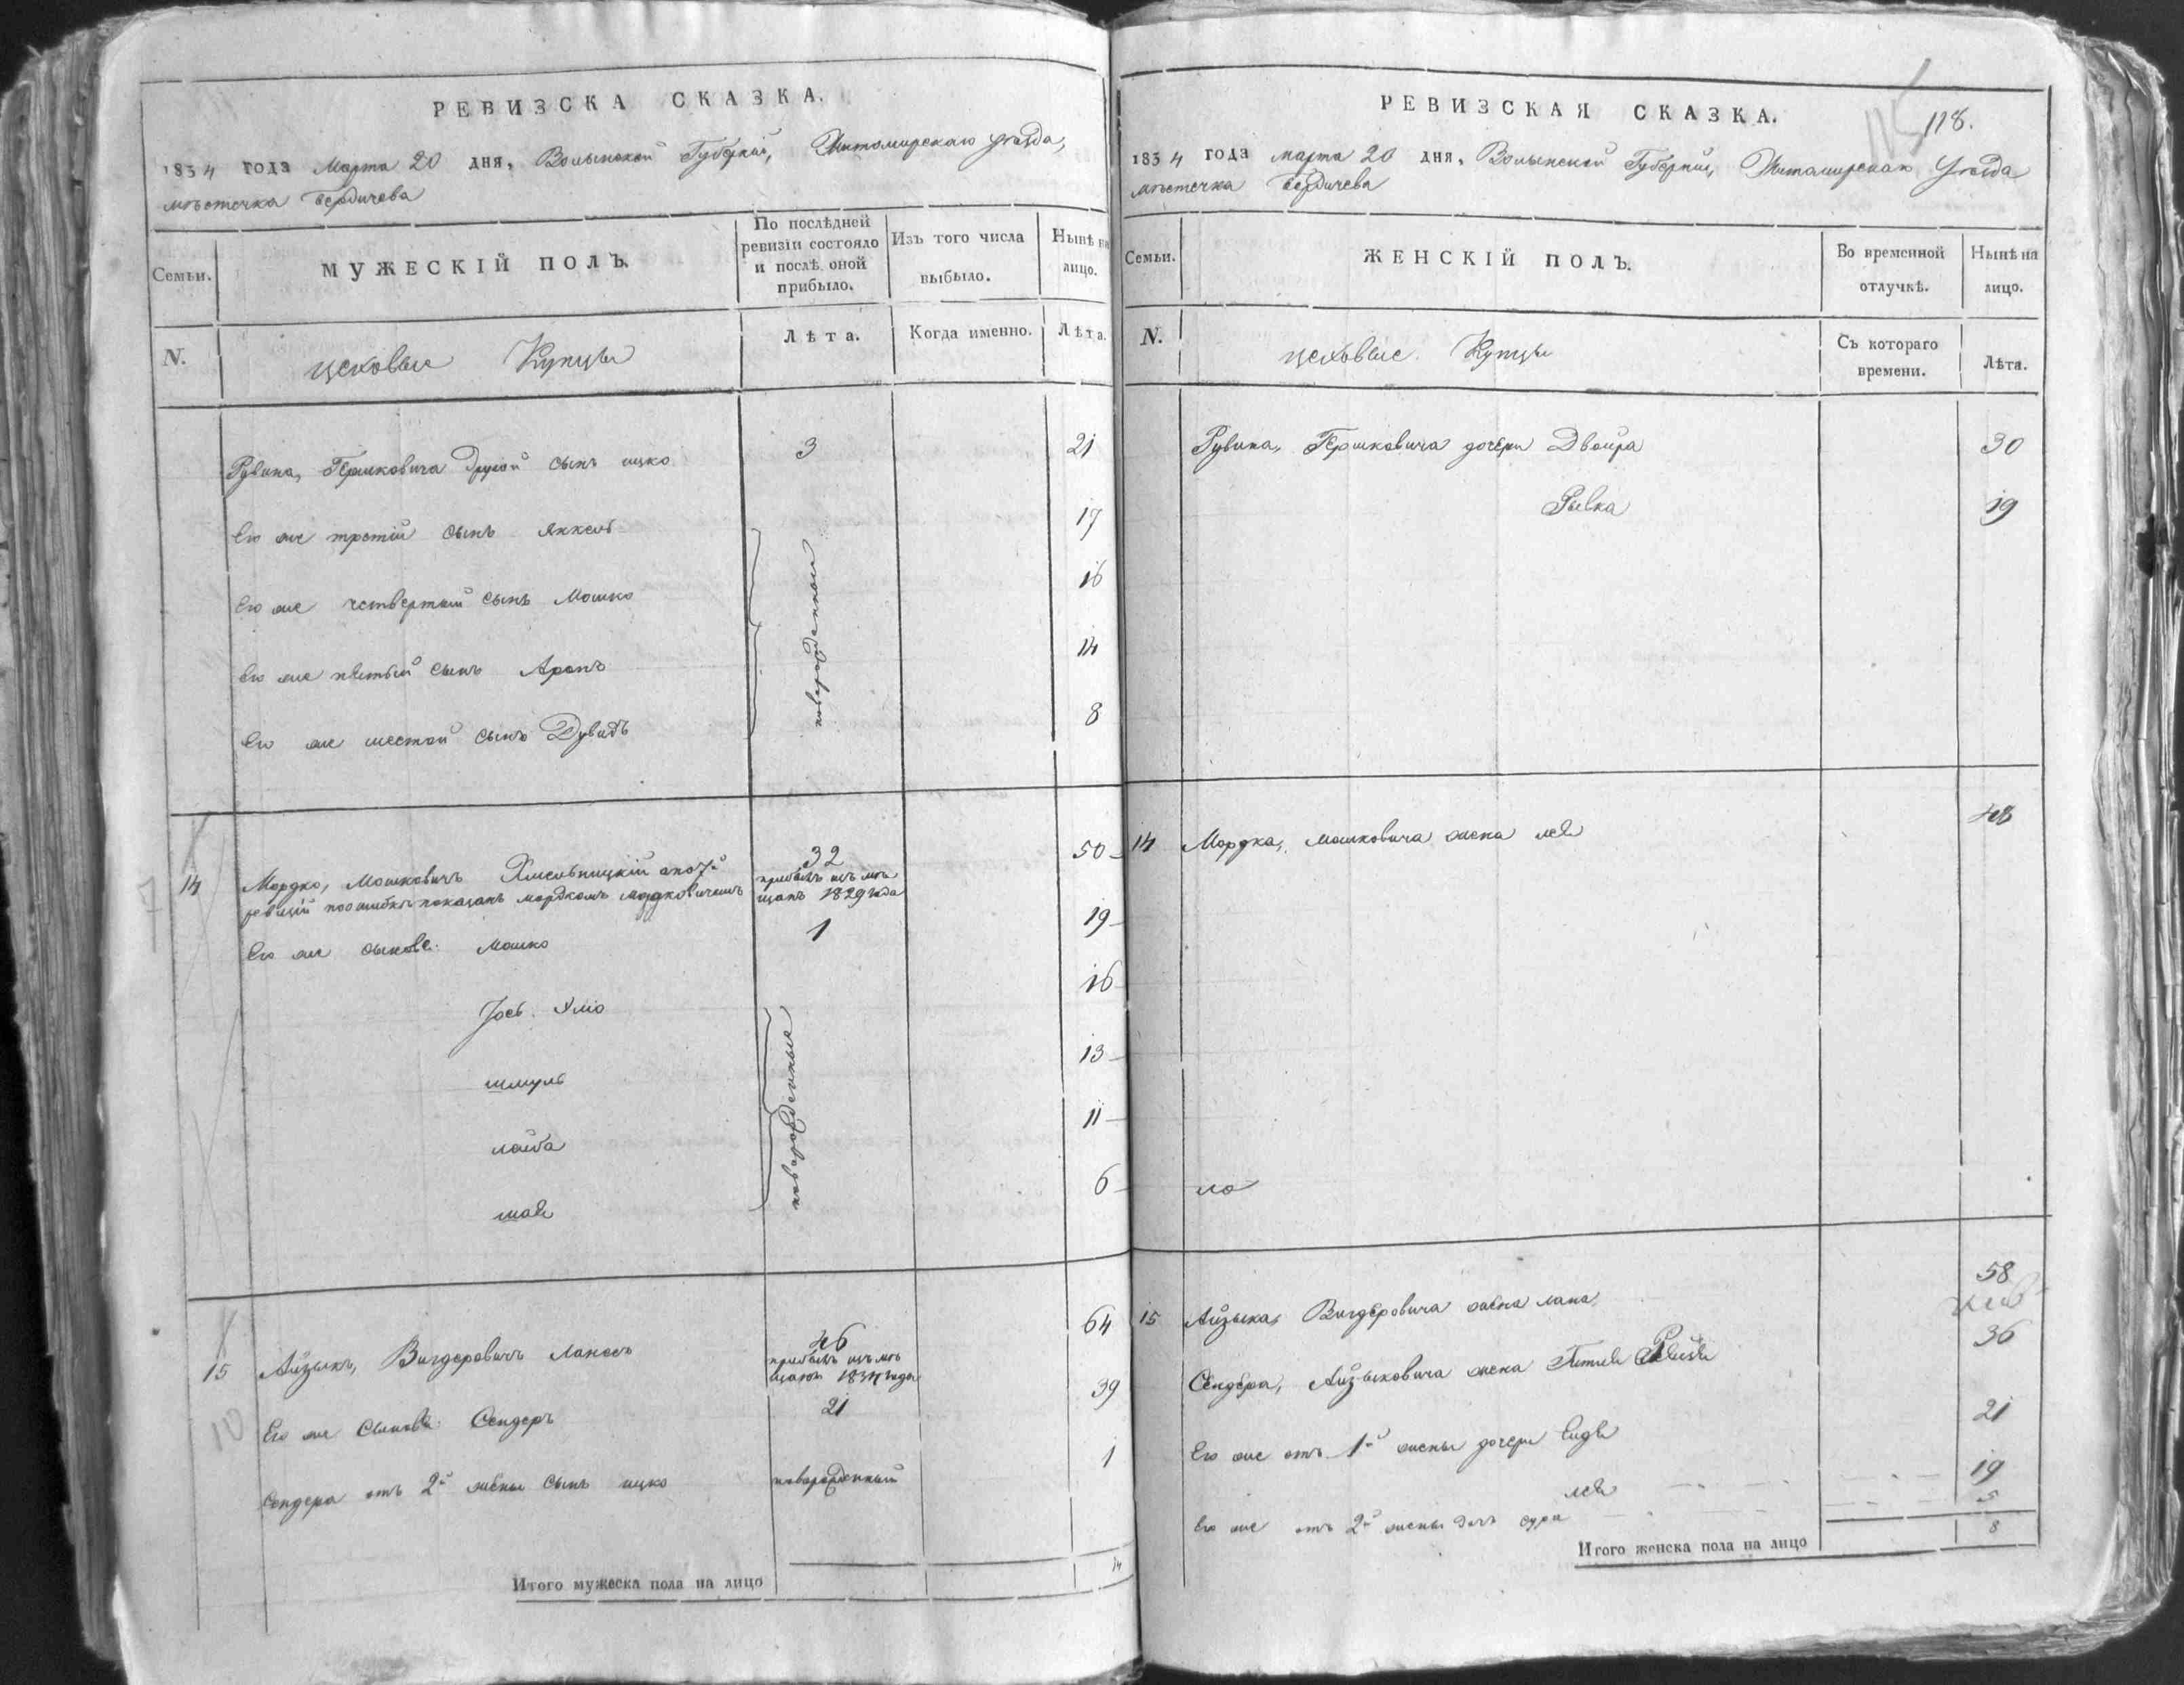 РЕВИЗСКА СКАЗКА.
1834 года Марта 20 дня, Волынской Губерніи, Житомирскаго уѣзда,
мѣстечка Бердичева
Семьи.
МУЖЕСКІЙ ПОЛЪ.
По послѣдней
ревизіи состояло
и послѣ оной
прибыло.
Изъ того числа
выбыло.
Нынѣ на
лицо.
N.
цеховые Купцы
Лѣта.
Когда именно.
Лѣта.
Рувина, Гершковича другой сынъ ицко 3 21
Его же третій сынъ Янкель 17
Его же четвертый сынъ Мошко 16
Его же пятый сынъ Аронъ 14
Его же шестой сынъ Дувидъ 8
новорожденныи
14 Мордко, Мошковичъ Хмельницкій а по 7й 32 50
ревизіи по ошибкѣ показанъ мордкомъ мордковичемъ
прибылъ изъ мѣ
щанъ 1829 года
Его же сынове: мошко 1 19
Іось 16
шмуль 13
лайба 11
шая 6
новорожденные
15 Айзыкъ, Вигдеровичъ 46 64
прибылъ изъ мѣ
щанъ года
Его же Сыновья: Сендеръ 21 39
Сендера отъ 2й жены сынъ ицко новорожденный 1
Итого мужеска пола на лицо 14
РЕВИЗСКАЯ СКАЗКА.
115 118.
1834 года марта 20 дня, Волынской Губерніи, Житомирскаго Уѣзда
мѣстечка Бердичева
Семьи.
ЖЕНСКІЙ ПОЛЪ.
Во временной
отлучкѣ.
Нынѣ на
лицо.
N.
цеховые Купцы
Съ котораго
времени.
Лѣта.
Рувина, Гершковича дочери Двойра 30
Рывка 19
14 Мордка, мошковича жена лея 48
15 Айзыка, Вигдеровича жена хана 58
Сендера, Айзыковича жена 36
Его же отъ 1й жены дочери Ендя 21
лея 19
Его же отъ 2й жены дочь сура 5
Итого женска пола на лицо 8